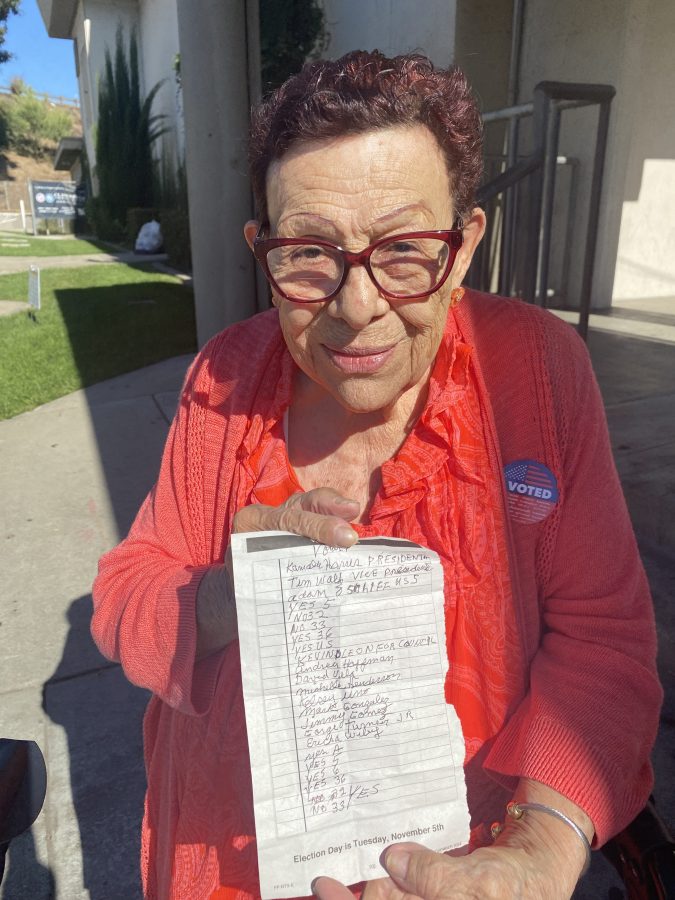 VOTED
Kamala Harris PRESIDENTE
Tim Walz VICE PRESIDENTE
adam SCHIFF US S
YES 5
NO 32
NO 33
YES 36
YES U.S
KEVIN DE LEON FOR COUNCIL
Andrea Hoffman
David
Michelle Henderson
Kelsey
Mark Gonzalez
Jimmy Gomez
George Turner JR
Ericka Wiley
yes A
YES 5
YES 6
YES 36
NO 32
NO 33 YES
Election Day is Tuesday, November 5th